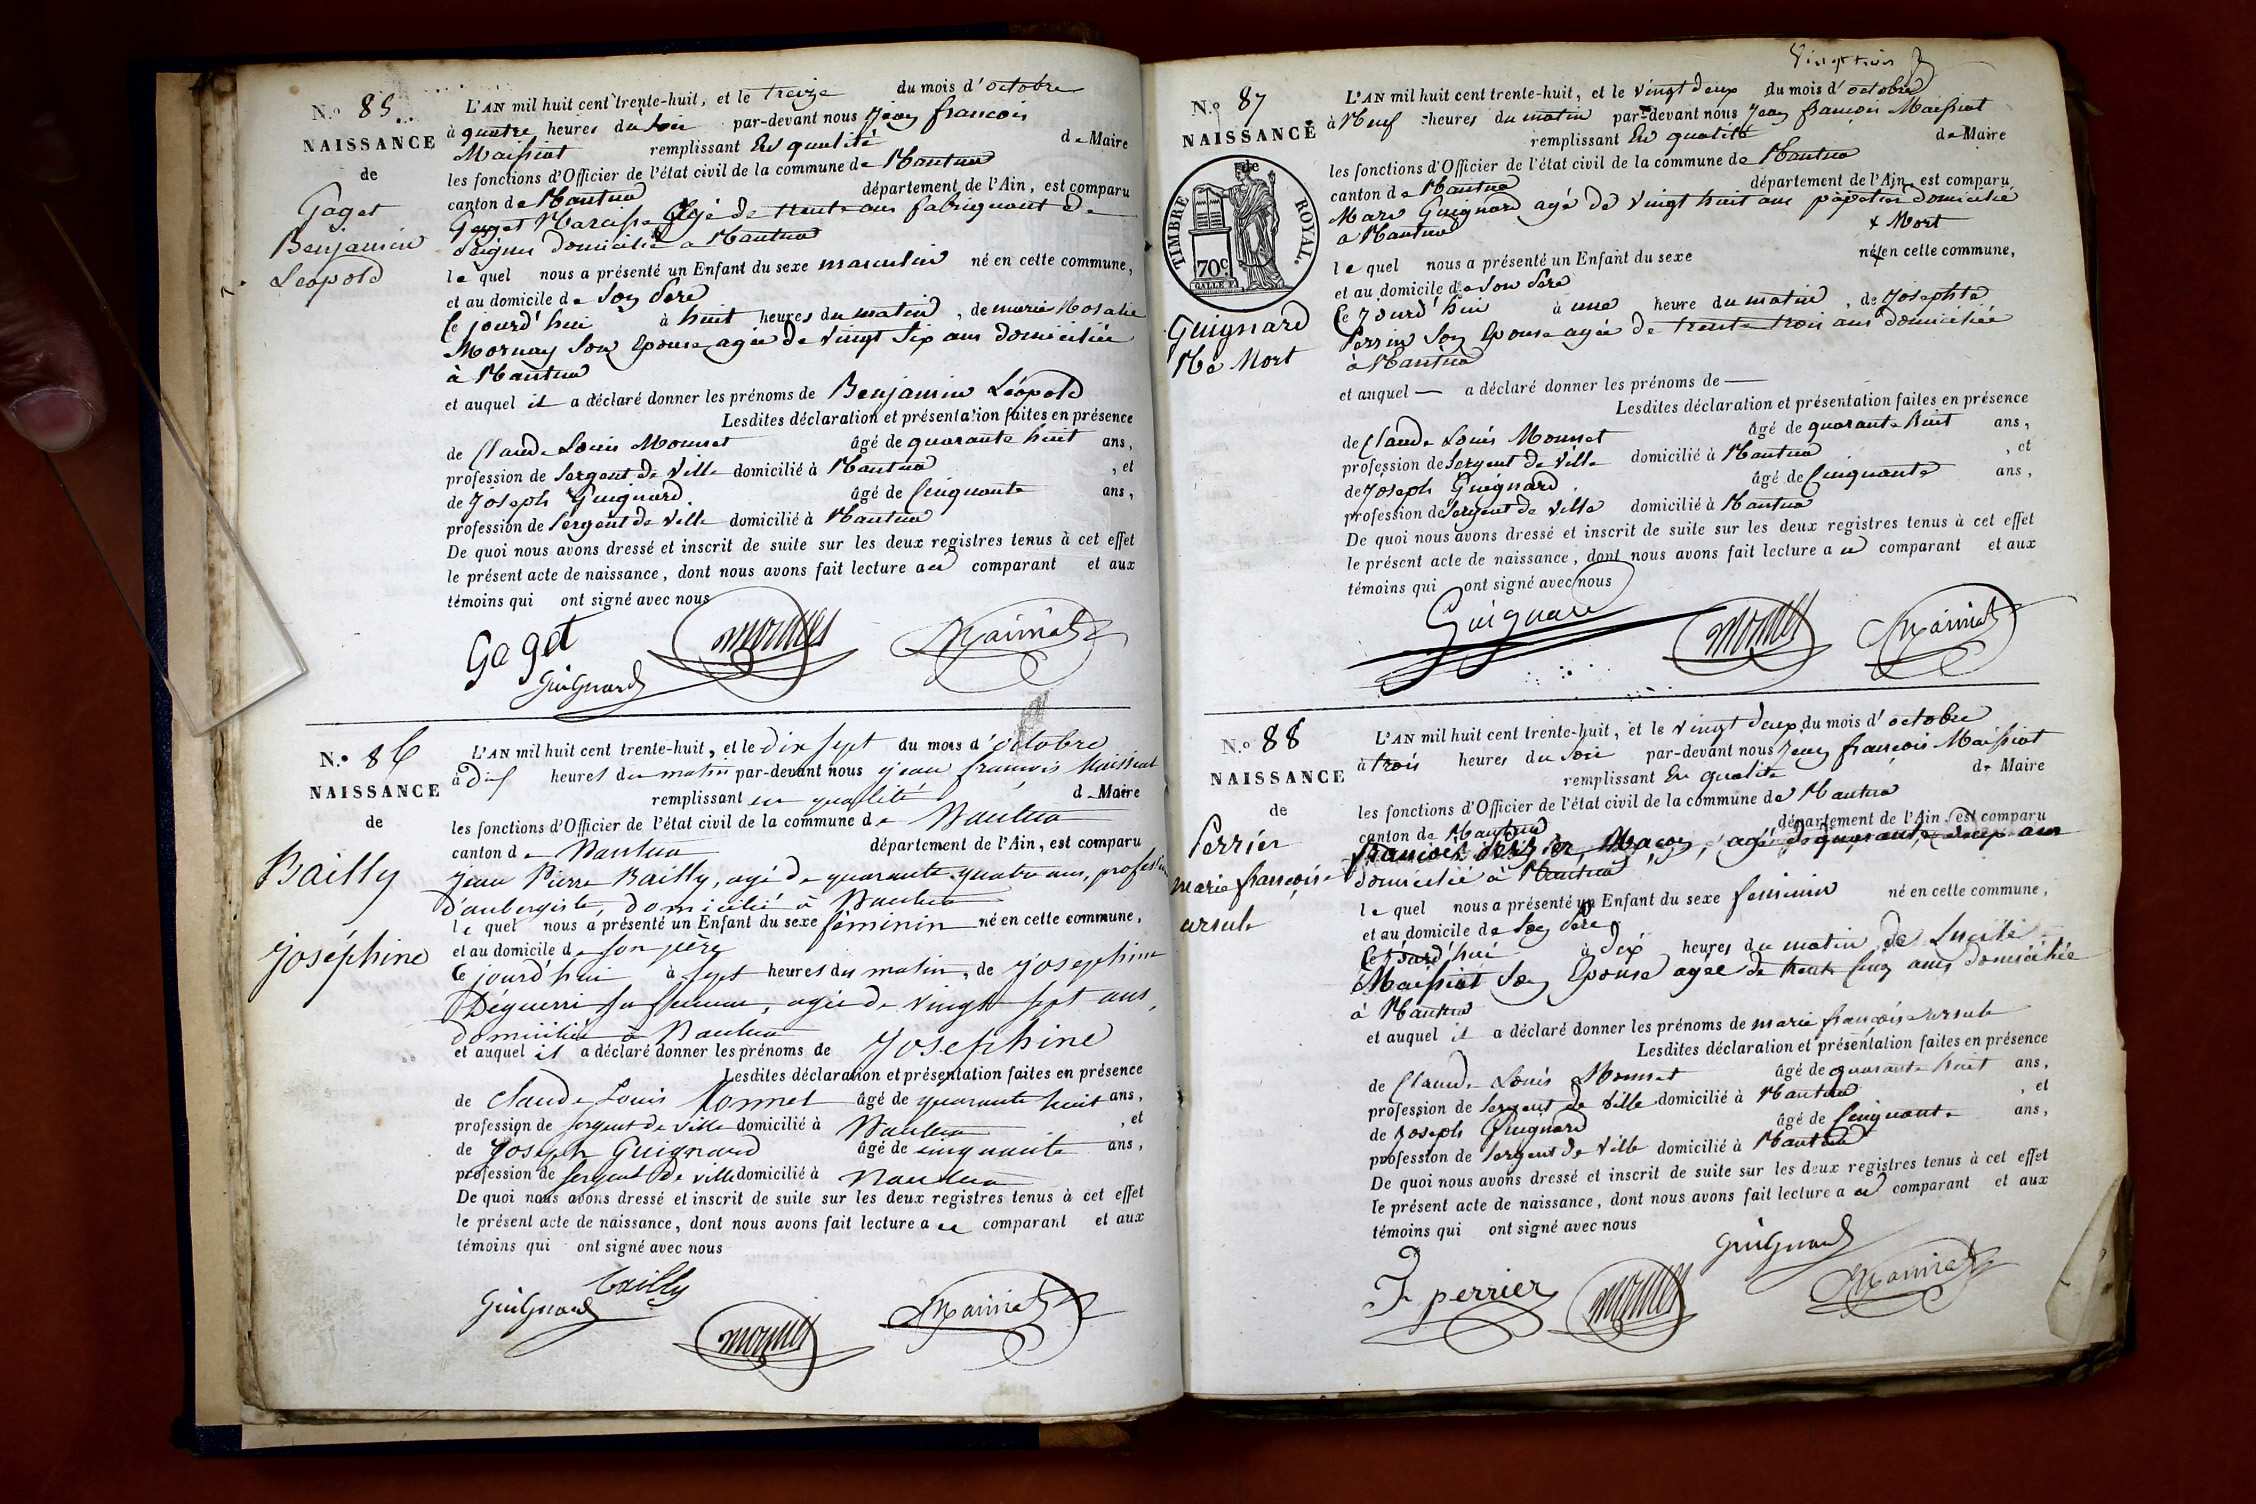 N.o 85
NAISSANCE
de
Gaget
Benjamin
Léopold
L'AN mil huit cent trente-huit, et le treize du mois d'octobre
à quatre heures du soir par-devant nous Jean françois
Maissiat remplissant En qualité de Maire
les fonctions d'Officier de l'état civil de la commune de Nantua
canton de Nantua département de l'Ain, est comparu
Gaget Narcisse agé de trente ans fabriquant de
peignes domicilié a Nantua
le quel nous a présenté un Enfant du sexe masculin né en cette commune,
et au domicile de Son père
Ce jourd'hui à huit heures du matin, de marie Rosalie
Mornay Son Epouse agée de vingt Six ans domiciliée
à Nantua
et auquel il a déclaré donner les prénoms de Benjamin Léopold
Lesdites déclaration et présentation faites en présence
de Claude Louis Monnet âgé de quarante huit ans,
profession de Sergent de Ville domicilié à Nantua, et
de Joseph Guignard âgé de Cinquante ans,
profession de Sergent de Ville domicilié à Nantua
De quoi nous avons dressé et inscrit de suite sur les deux registres tenus à cet effet
le présent acte de naissance, dont nous avons fait lecture au comparant et aux
témoins qui ont signé avec nous
Gaget monnet Maissiat
Guignard
N.o 86
NAISSANCE
de
Bailly
Joséphine
L'AN mil huit cent trente-huit, et le dix sept du mois d'octobre
à dix heures du matin par-devant nous jean françois Maissiat
remplissant en qualité de Maire
les fonctions d'Officier de l'état civil de la commune de Nantua
canton de Nantua département de l'Ain, est comparu
Jean Pierre Bailly, agé de quarante quatre ans, profession
d'aubergiste, domicilié à Nantua
le quel nous a présenté un Enfant du sexe féminin né en cette commune,
et au domicile de son père
Ce jourd'hui à sept heures du matin, de Josephine
Déguerri sa femme, agée de vingt sept ans,
domiciliée à Nantua
et auquel il a déclaré donner les prénoms de Josephine
Lesdites déclaration et présentation faites en présence
de Claude Louis Monnet âgé de quarante huit ans,
profession de sergent de ville domicilié à Nantua, et
de Joseph Guignard âgé de cinquante ans,
profession de sergent de ville domicilié à Nantua
De quoi nous avons dressé et inscrit de suite sur les deux registres tenus à cet effet
le présent acte de naissance, dont nous avons fait lecture a ce comparant et aux
témoins qui ont signé avec nous
Bailly
Guignard monnet Maissiat
Vingt trois
N.o 87
NAISSANCE
de
TIMBRE ROYAL.
70c
Guignard
Né Mort
L'AN mil huit cent trente-huit, et le vingt deux du mois d'octobre
à Neuf heures du matin par-devant nous Jean françois Maissiat
remplissant En qualité de Maire
les fonctions d'Officier de l'état civil de la commune de Nantua
canton de Nantua département de l'Ain, est comparu
Marc Guignard agé de vingt huit ans papetier domicilié
a Nantua + Mort
le quel nous a présenté un Enfant du sexe né + en cette commune,
et au domicile de Son père
Ce jourd'hui à une heure du matin, de Josephte
Perrin Son Epouse agée de trente trois ans domiciliée
à Nantua
et auquel — a déclaré donner les prénoms de —
Lesdites déclaration et présentation faites en présence
de Claude Louis Monnet âgé de quarante huit ans,
profession de Sergent de Ville domicilié à Nantua, et
de Joseph Guignard âgé de Cinquante ans,
profession de Sergent de Ville domicilié à Nantua
De quoi nous avons dressé et inscrit de suite sur les deux registres tenus à cet effet
le présent acte de naissance, dont nous avons fait lecture a ce comparant et aux
témoins qui ont signé avec nous
Guignard monnet Maissiat
N.o 88
NAISSANCE
de
Perrier
marie françoise
ursule
L'AN mil huit cent trente-huit, et le vingt deux du mois d'octobre
à trois heures du Soir par-devant nous Jean françois Maissiat
remplissant En qualité de Maire
les fonctions d'Officier de l'état civil de la commune de Nantua
canton de Nantua département de l'Ain, est comparu
françois Perrier, Maçon, agé de quarante deux ans
domicilié à Nantua
le quel nous a présenté un Enfant du sexe feminin né en cette commune,
et au domicile de Son père
Ce jourd'hui à dix heures du matin, de Lucile
Maissiat Son Epouse agée de trente Cinq ans domiciliée
à Nantua
et auquel il a déclaré donner les prénoms de marie françoise ursule
Lesdites déclaration et présentation faites en présence
de Claude Louis Monnet âgé de quarante huit ans,
profession de Sergent de Ville domicilié à Nantua, et
de Joseph Guignard âgé de Cinquante ans,
profession de Sergent de Ville domicilié à Nantua
De quoi nous avons dressé et inscrit de suite sur les deux registres tenus à cet effet
le présent acte de naissance, dont nous avons fait lecture a ce comparant et aux
témoins qui ont signé avec nous
Guignard
F perrier monnet Maissiat